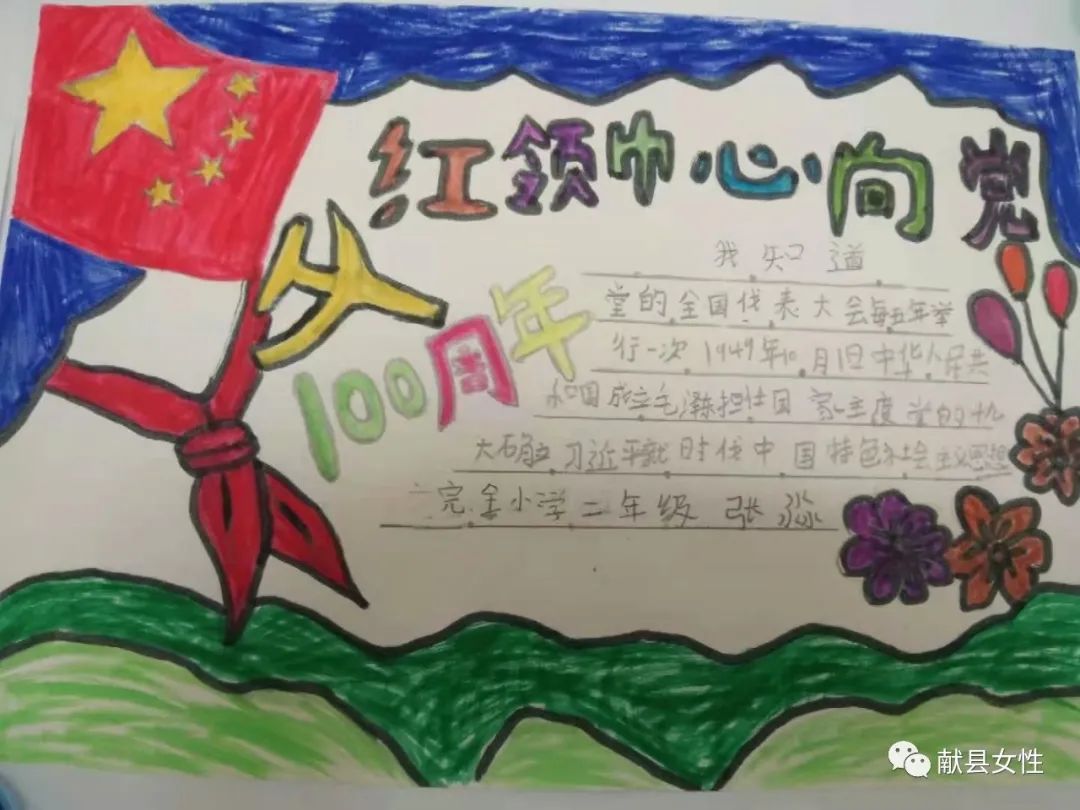 红领巾心向党
100周年
我知道
堂的全国代表大会每五年举
行一次 1949年10月1日中华人民共
和国成立毛泽东担任国家主度党的十九
大确立习近平新时代中国特色社会主义思想
完全小学二年级 张淼
献县女性